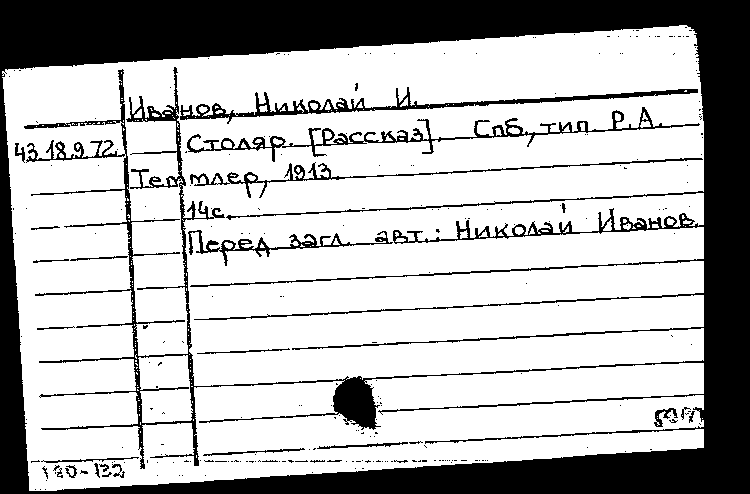 Иванов, Николай И.
43.18.9.72. Столяр. [Рассказ]. Спб., тип. Р.А.
Теттлер, 1913.
14с.
Перед загл. авт.: Николай Иванов.
130-132